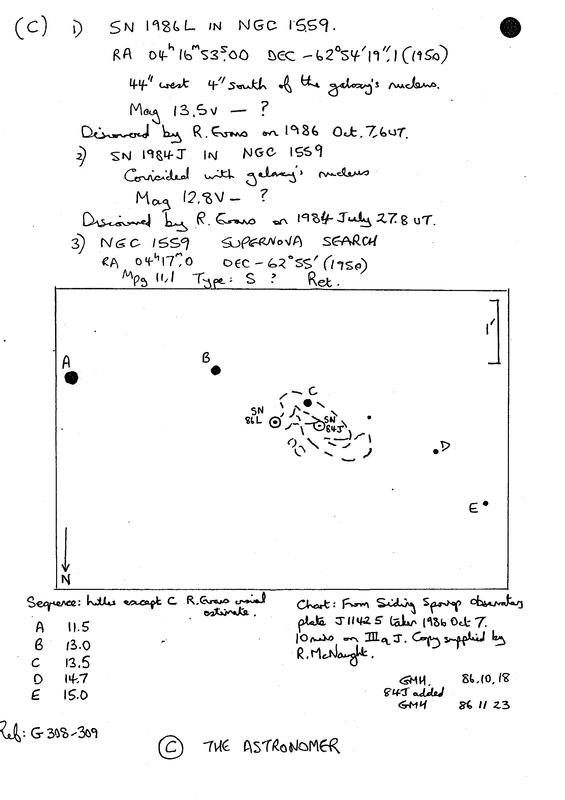 (C) 1) SN 1986L IN NGC 1559.
RA 04h 16m 53s.00 DEC -62°54'19".1 (1950)
44" west 4" south of the galaxy's nucleus.
Mag 13.5v — ?
Discovered by R. Evans on 1986 Oct. 7.6UT.
2) SN 1984J IN NGC 1559
Coincided with galaxy's nucleus
Mag 12.8V — ?
Discovered by R. Evans on 1984 July 27.8 UT.
3) NGC 1559 SUPERNOVA SEARCH
RA 04h17m.0 DEC -62°55' (1950)
Mpg 11.1 Type: S ? Ret.
1'
A
B
C
SN
86L
SN
84J
D
E
N
Sequence: hitles except C R. Evans visual
estimate.
A 11.5
B 13.0
C 13.5
D 14.7
E 15.0
Chart: From Siding Spring observatory
plate J11425 taken 1986 Oct 7.
10 mins on IIIaJ. Copy supplied by
R. McNaught.
GMH. 86.10.18
84J added
GMH 86 11 23
Ref: G308-309
© THE ASTRONOMER